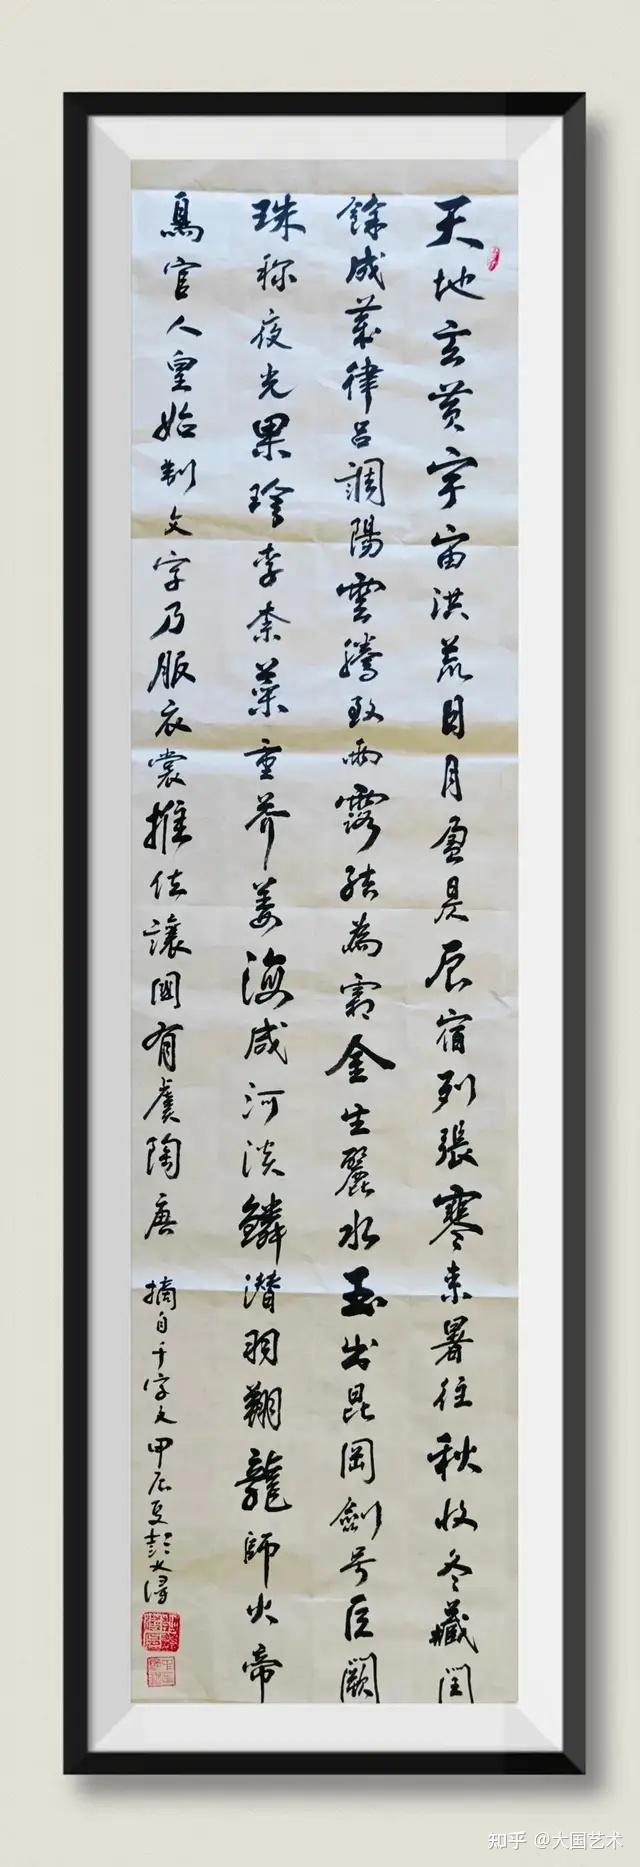 天地玄黄宇宙洪荒日月盈昃辰宿列張寒来暑往秋收冬藏閏
餘成歲律吕調陽雲騰致雨露結為霜金生麗水玉出昆岡劍号巨闕
珠称夜光果珍李柰菜重芥姜海咸河淡鱗潜羽翔龍師火帝
鳥官人皇始制文字乃服衣裳推位讓國有虞陶唐 摘自千字文 甲辰夏彭
知乎 @大国艺术